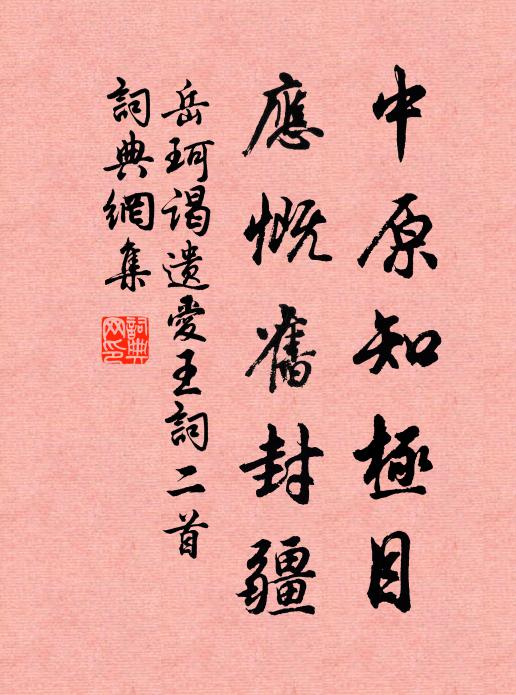 中原知極目
應慨舊封疆
岳珂謁遺愛王詞二首
詞典網集
詞典
网印